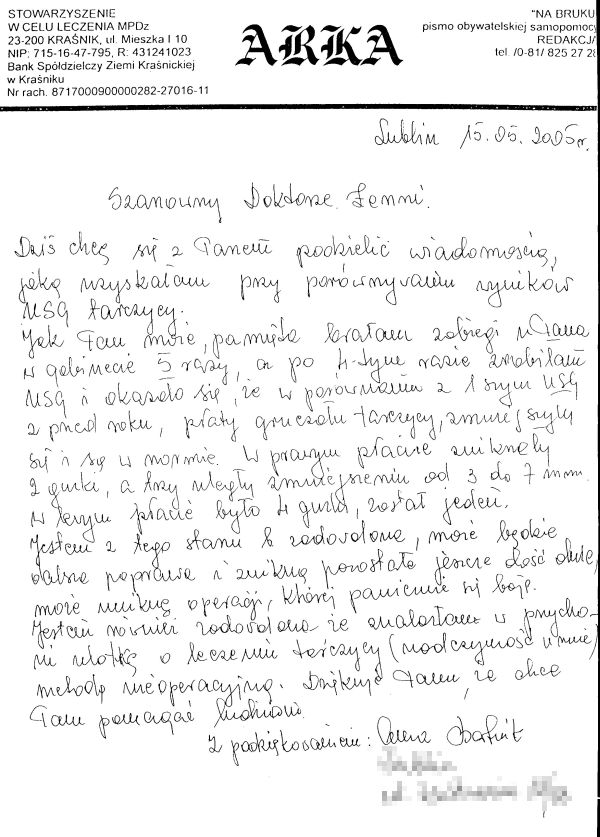 STOWARZYSZENIE
W CELU LECZENIA MPDz
23-200 KRAŚNIK, ul. Mieszka I 10
NIP: 715-16-47-795, R: 431241023
Bank Spółdzielczy Ziemi Kraśnickiej
w Kraśniku
Nr rach. 8717000900000282-27016-11
ARKA
"NA BRUKU
pismo obywatelskiej samopomocy
REDAKCJA
tel. /0-81/ 825 27 28
Lublin 15.05.2005r.
Szanowny Doktorze Żenni.
Dziś chcę się z Panem podzielić wiadomością,
jaką uzyskałam przy porównywaniu wyników
USG tarczycy.
Jak Pan może, pamięta brałam zabiegi u Pana
w gabinecie 5 razy, a po 4-tym razie zrobiłam
USG i okazało się, że w porównaniu z 1szym USG
z przed roku, płaty gruczołu tarczycy, zmniejszyły
się i są w normie. W prawym płacie zniknęły
2 guzki, a trzy uległy zmniejszeniu od 3 do 7 mm
w lewym płacie było 4 guzki, został jeden.
Jestem z tego stanu b. zadowolona, może będzie
dalsza poprawa i znikną pozostałe jeszcze dość duże,
może uniknę operacji, której panicznie się boję.
Jestem również zadowolona że znalazłam w przycho-
dni ulotkę o leczeniu tarczycy (nadczynność u mnie)
metodą nieoperacyjną. Dziękuję Panu, że chce
Pan pomagać ludziom.
Z podziękowaniem: